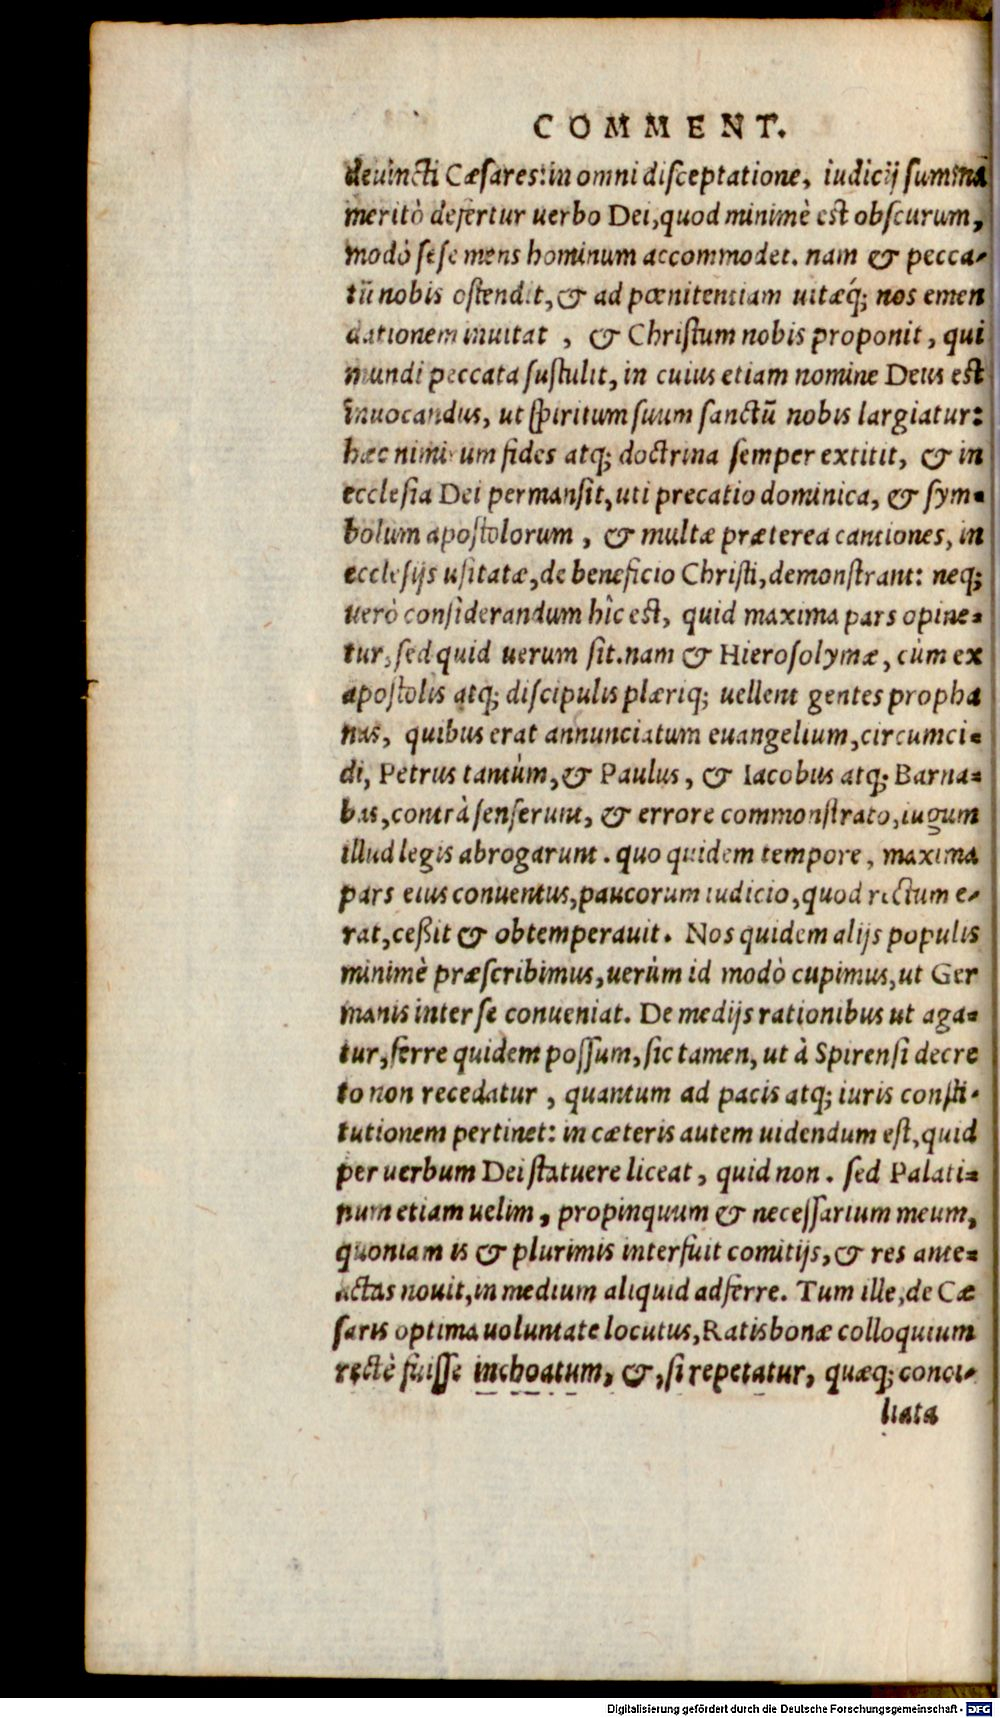 COMMENT.
deuincti Cæsares: in omni disceptatione, iudicij summa
meritò defertur uerbo Dei, quod minimè est obscurum,
modò sese mens hominum accommodet. nam & pecca-
tũ nobis ostendit, & ad pœnitentiam uitæq́; nos emen
dationem inuitat, & Christum nobis proponit, qui
mundi peccata sustulit, in cuius etiam nomine Deus est
inuocandus, ut spiritum suum sanctũ nobis largiatur:
hæc nimirum fides atq; doctrina semper extitit, & in
ecclesia Dei permansit, uti precatio dominica, & sym-
bolum apostolorum, & multæ præterea cantiones, in
ecclesijs usitatæ, de beneficio Christi, demonstrant: neq;
uerò considerandum hîc est, quid maxima pars opine-
tur, sed quid uerum sit. nam & Hierosolymæ, cùm ex
apostolis atq; discipulis plæriq; uellent gentes propha
nas, quibus erat annunciatum euangelium, circumci-
di, Petrus tantùm, & Paulus, & Iacobus atq; Barna-
bas, contrà senserunt, & errore commonstrato, iugum
illud legis abrogarunt. quo quidem tempore, maxima
pars eius conuentus, paucorum iudicio, quod rectum e-
rat, ceßit & obtemperauit. Nos quidem alijs populis
minimè præscribimus, uerùm id modò cupimus, ut Ger
manis inter se conueniat. De medijs rationibus ut aga-
tur, ferre quidem possum, sic tamen, ut à Spirensi decre
to non recedatur, quantum ad pacis atq; iuris consti-
tutionem pertinet: in cæteris autem uidendum est, quid
per uerbum Dei statuere liceat, quid non. sed Palati-
num etiam uelim, propinquum & necessarium meum,
quoniam is & plurimis interfuit comitijs, & res ante-
actas nouit, in medium aliquid adferre. Tum ille, de Cæ
saris optima uoluntate locutus, Ratisbonæ colloquium
rectè fuisse inchoatum, &, si repetatur, quæq; conci-
liata
Digitalisierung gefördert durch die Deutsche Forschungsgemeinschaft - DFG